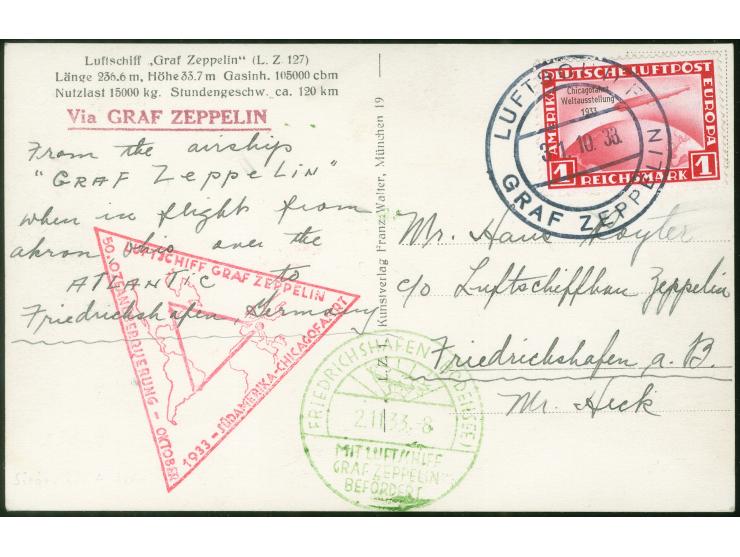 Luftschiff „Graf Zeppelin" (L. Z. 127)
Länge 236.6 m, Höhe 33.7 m Gasinh. 105000 cbm
Nutzlast 15000 kg. Stundengeschw. ca. 120 km
Via GRAF ZEPPELIN
From the airship
"GRAF Zeppelin"
when in flight from
akron ohio over the
ATLANTIC to
Friedrichshafen Germany
LUFTSCHIFF GRAF ZEPPELIN
50. OZEANÜBERQUERUNG - OKTOBER
1933 - SÜDAMERIKA-CHICAGOFAHRT
L. Z. Kunstverlag Franz Walter, München 19
DEUTSCHE LUFTPOST
AMERIKA
EUROPA
Chicagofahrt
Weltausstellung
1933
1 REICHSMARK 1
LUFTSCHIFF
31. 10. 33.
GRAF ZEPPELIN
Mr. Hans
c/o Luftschiffbau Zeppelin
Friedrichshafen a. B.
Mr. Heck
FRIEDRICHSHAFEN (BODENSEE)
2.11.33.-8
MIT LUFTSCHIFF
GRAF ZEPPELIN
BEFÖRDERT